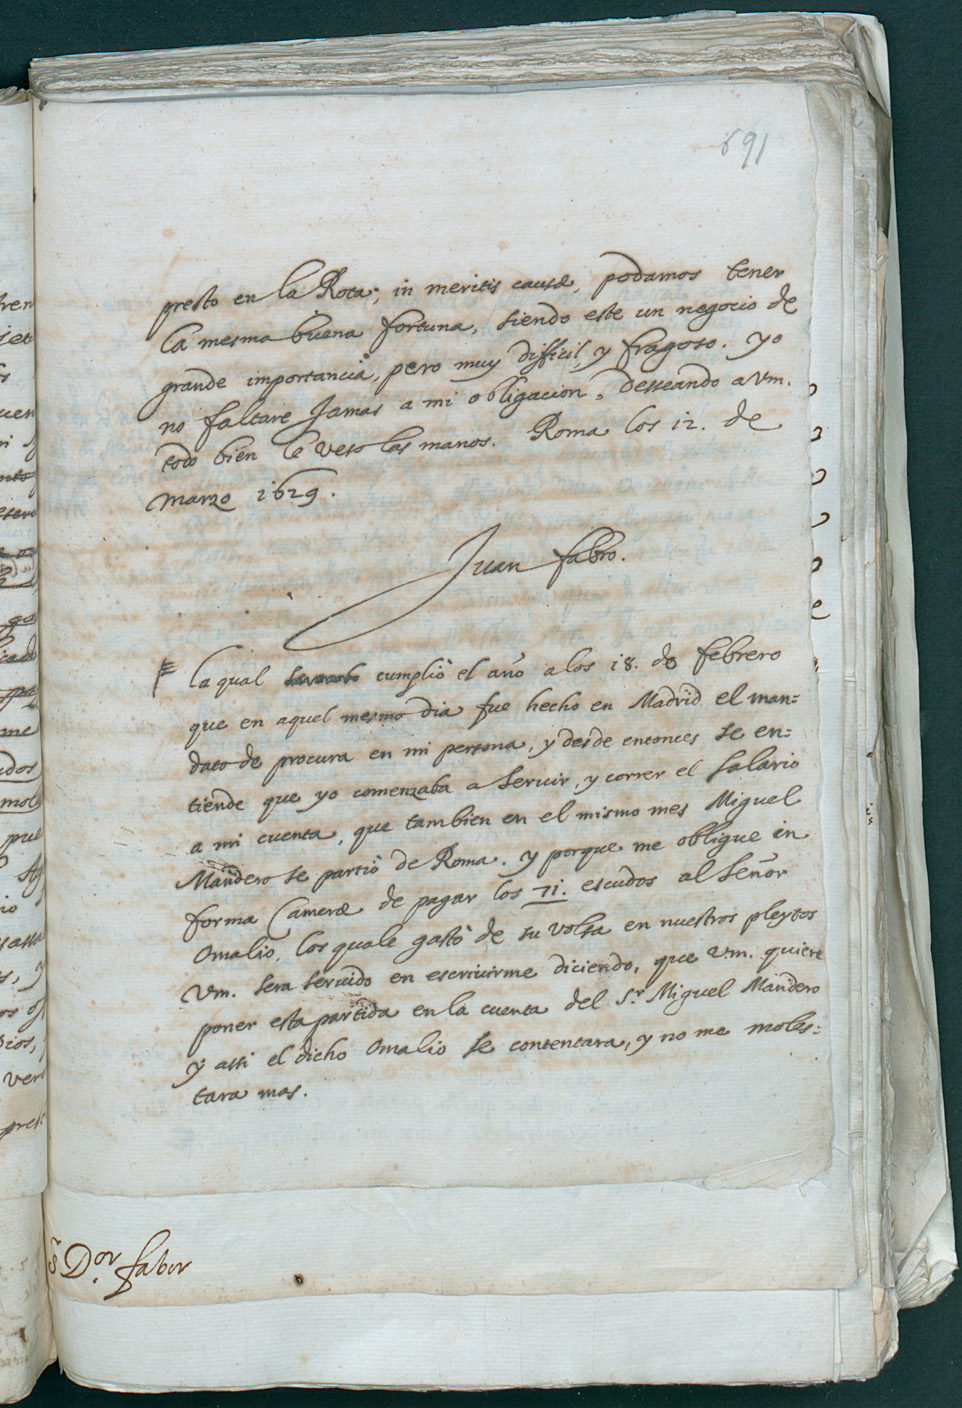 691
presto en la Rota, in meritis causæ, podamos tener
la mesma buena fortuna, siendo este un negocio de
grande importancia, pero muy difficil, y fragoso. yo
no faltare Jamas a mi obligacion. desseando a Vm.
todo bien le veso las manos. Roma los 12. de
Marzo 1629.
Juan fabro.
la qual cumpliò el año a los 18. de febrero
que en aquel mesmo dia fue hecho en Madrid el man=
dato de procura en mi persona, y desde entonces se en=
tiende que yo comenzaba a servir, y correr el salario
a mi cuenta, que tambien en el mismo mes Miguel
Mandero se partiò de Roma. y porque me obligue in
forma Cameræ de pagar los 71. escudos al Señor
Omalio, los quale gastò de su volsa en nuestros pleytos
Vm. sera servido en escrivirme diciendo, que Vm. quiere
poner esta partida en la cuenta del S.r Miguel Mandero
y assi el dicho Omalio se contentara, y no me moles=
tara mas.
Dor. fabor